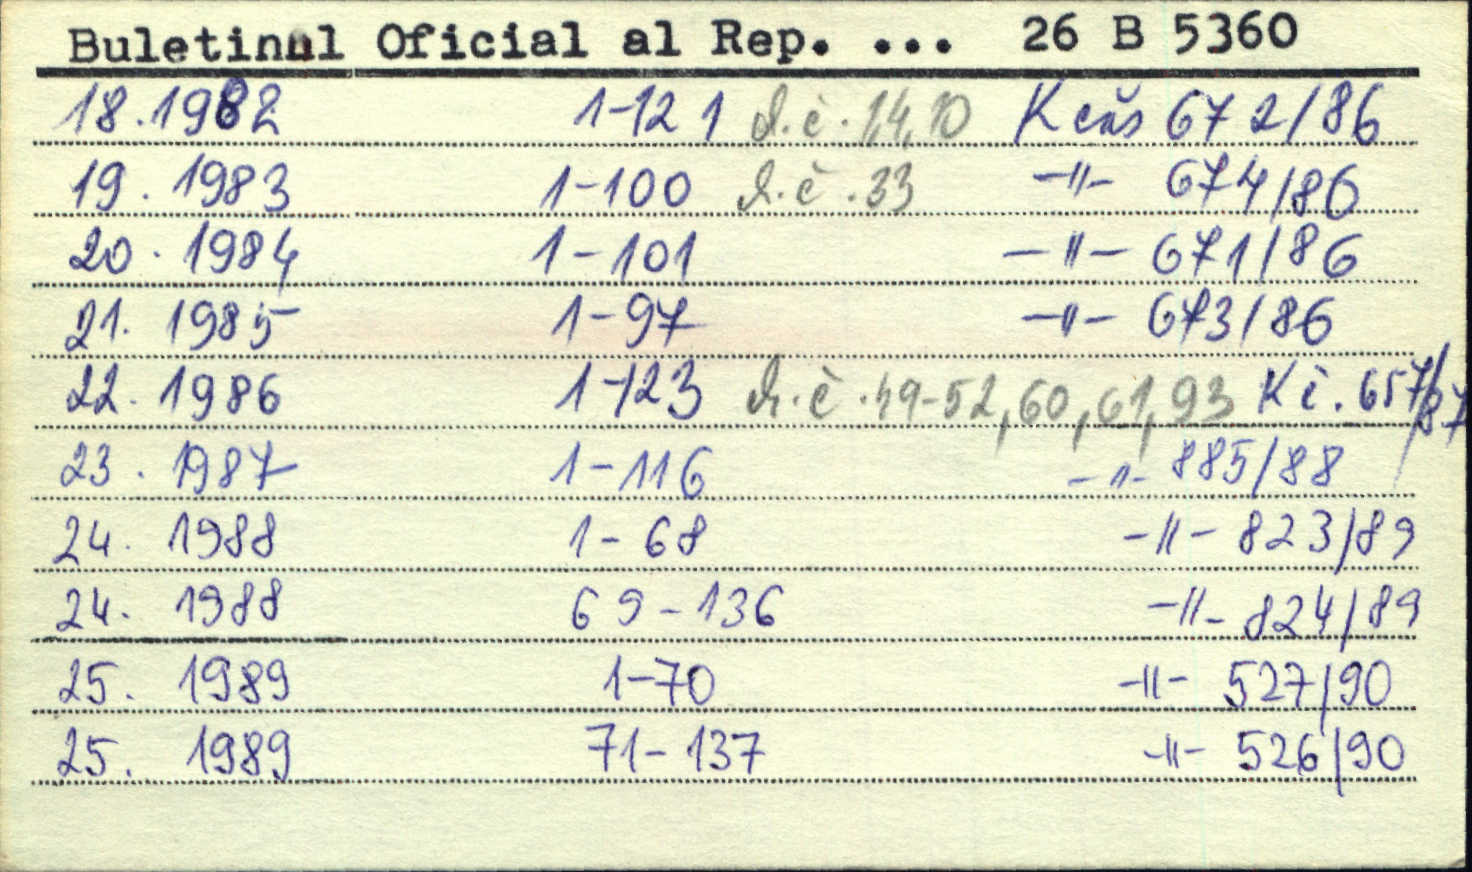 Buletinul Oficial al Rep. ... 26 B 5360
18. 1982 1-121 d.č. 1,4,10 K čas 672/86
19. 1983 1-100 d.č. 33 -"- 674/86
20. 1984 1-101 -"- 671/86
21. 1985 1-97 -"- 673/86
22. 1986 1-123 d.č. 49-52,60,61,93 K č. 657/87
23. 1987 1-116 -"- 885/88
24. 1988 1-68 -"- 823/89
24. 1988 69-136 -"- 824/89
25. 1989 1-70 -"- 527/90
25. 1989 71-137 -"- 526/90